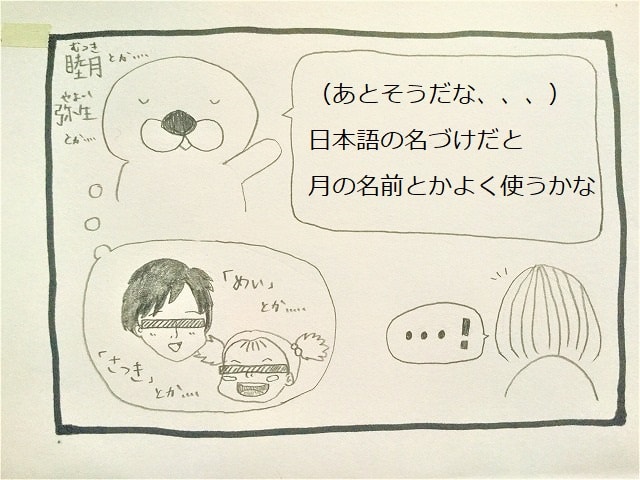 むつき
睦月とか....
やよい
弥生
とか....
（あとそうだな、、、）
日本語の名づけだと
月の名前とかよく使うかな
「めい」
とか.....
「さつき」
とか....
...!